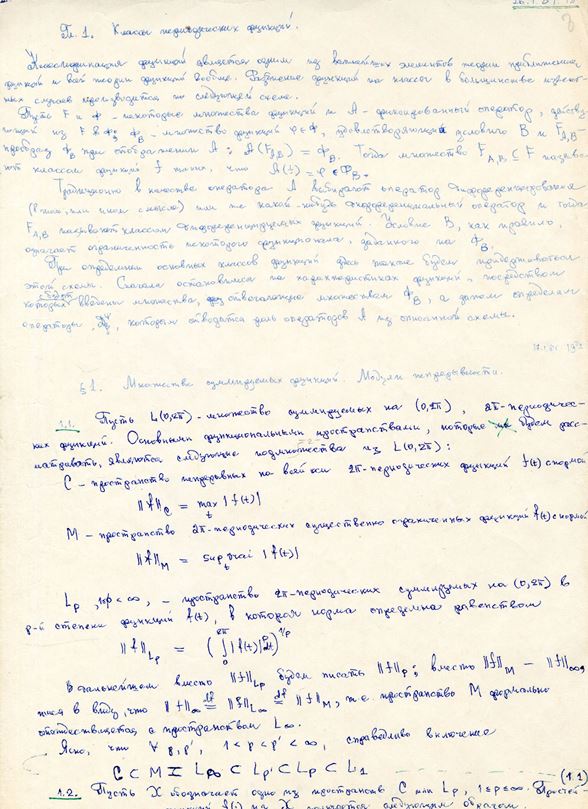 Гл. 1. Классы периодических функций.
Классификация функций является одним из важнейших элементов теории приближения
функций и всей теории функций вообще. Разбиение функций на классы в большинстве извест-
ных случаев производится по следующей схеме.
Пусть F и Ф - некоторые множества функций и A - фиксированный оператор, действу-
ющий из F в Ф; Ф_B - множество функций φ ∈ Ф, удовлетворяющих условию B и F_{A,B}
прообраз Ф_B при отображении A: A(F_{A,B}) = Ф_B. Тогда множество F_{A,B} ⊆ F называ-
ют классом функций f таких, что A(f) = φ ∈ Ф_B.
Традиционно в качестве оператора A выбирают оператор дифференцирования
(в том, или ином смысле) или же какой-нибудь дифференциальный оператор и тогда
F_{A,B} называют классом дифференцируемых функций. Условие B, как правило,
означает ограниченность некоторого функционала, заданного на Ф_B.
При определении основных классов функций здесь также будем придерживаться
этой схемы. Сначала остановимся на характеристиках функций, посредством
которых будут введены множества, отвечающие множествам Ф_B, а затем определим
операторы, которым отводится роль операторов A из описанной схемы.
§1. Множества суммируемых функций. Модули непрерывности.
1.1. Пусть L(0,2π) - множество суммируемых на (0,2π), 2π-периодичес-
ких функций. Основными функциональными пространствами, которые будем рас-
сматривать, являются следующие подмножества из L(0,2π):
C - пространство непрерывных на всей оси 2π-периодических функций f(t) с нормой
‖f‖_C = max_t |f(t)|
M - пространство 2π-периодических существенно ограниченных функций f(t) с нормой
‖f‖_M = sup_t vrai |f(t)|
L_p, 1≤p<∞, - пространство 2π-периодических суммируемых на (0,2π) в
p-й степени функций f(t), в котором норма определена равенством
‖f‖_{L_p} = (∫_0^{2π} |f(t)|^p dt)^{1/p}
В дальнейшем вместо ‖f‖_{L_p} будем писать ‖f‖_p; вместо ‖f‖_M - ‖f‖_∞,
имея в виду, что ‖f‖_∞ df= ‖f‖_{L_∞} df= ‖f‖_M, т.е. пространство M формально
отождествляется с пространством L_∞.
Ясно, что ∀ p, p', 1 < p < p' < ∞, справедливо включение
C ⊂ M = L_∞ ⊂ L_{p'} ⊂ L_p ⊂ L_1 (1.1)
1.2. Пусть X обозначает одно из пространств C или L_p, 1≤p≤∞.